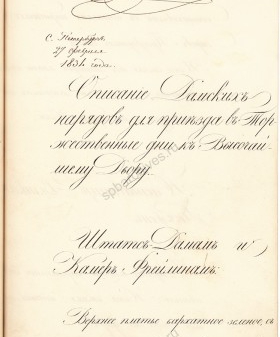 С. Петербург
27 февраля
1834 года.
Описание Дамскихъ
нарядовъ для пріѣзда въ Тор
жественные дни къ Высочай
шему Двору.
Штатсъ Дамамъ и
Камеръ Фрейлинамъ.
Верхнее платье бархатное зеленое, съ